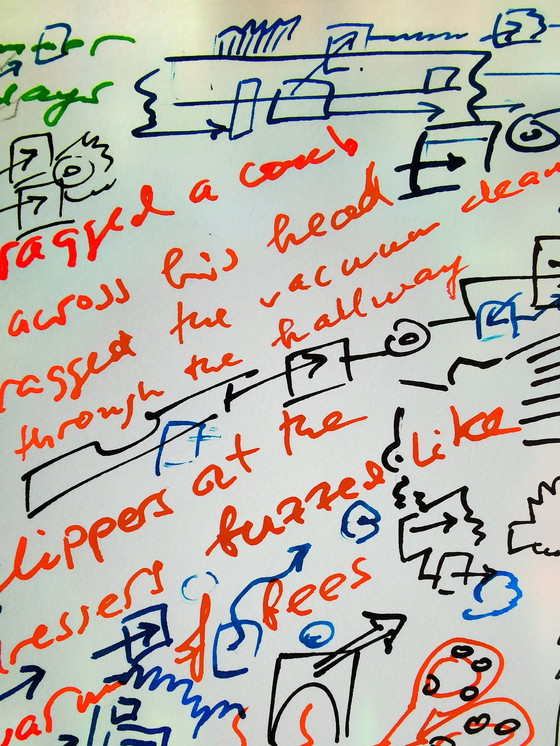 ragged a comb
across his head
ragged the vacuum clean
through the hallway
lippers at the
ressers buzzed like
warm of bees